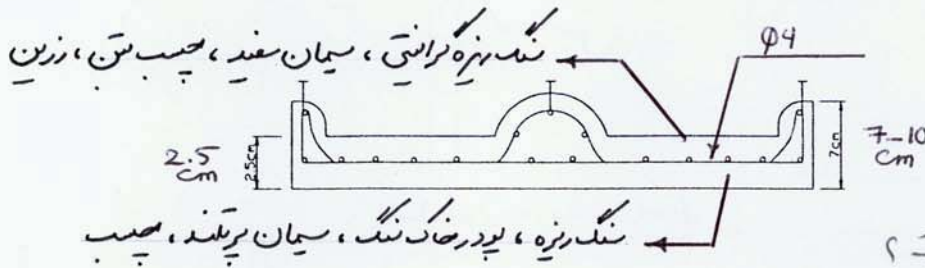 سنگ ریزه گرانیتی ، سیمان سفید ، چسب بتن ، رزین
φ4
2.5 cm
2.5cm
7cm
7-10 cm
سنگ ریزه ، پودر خاک سنگ ، سیمان پرتلند ، چسب